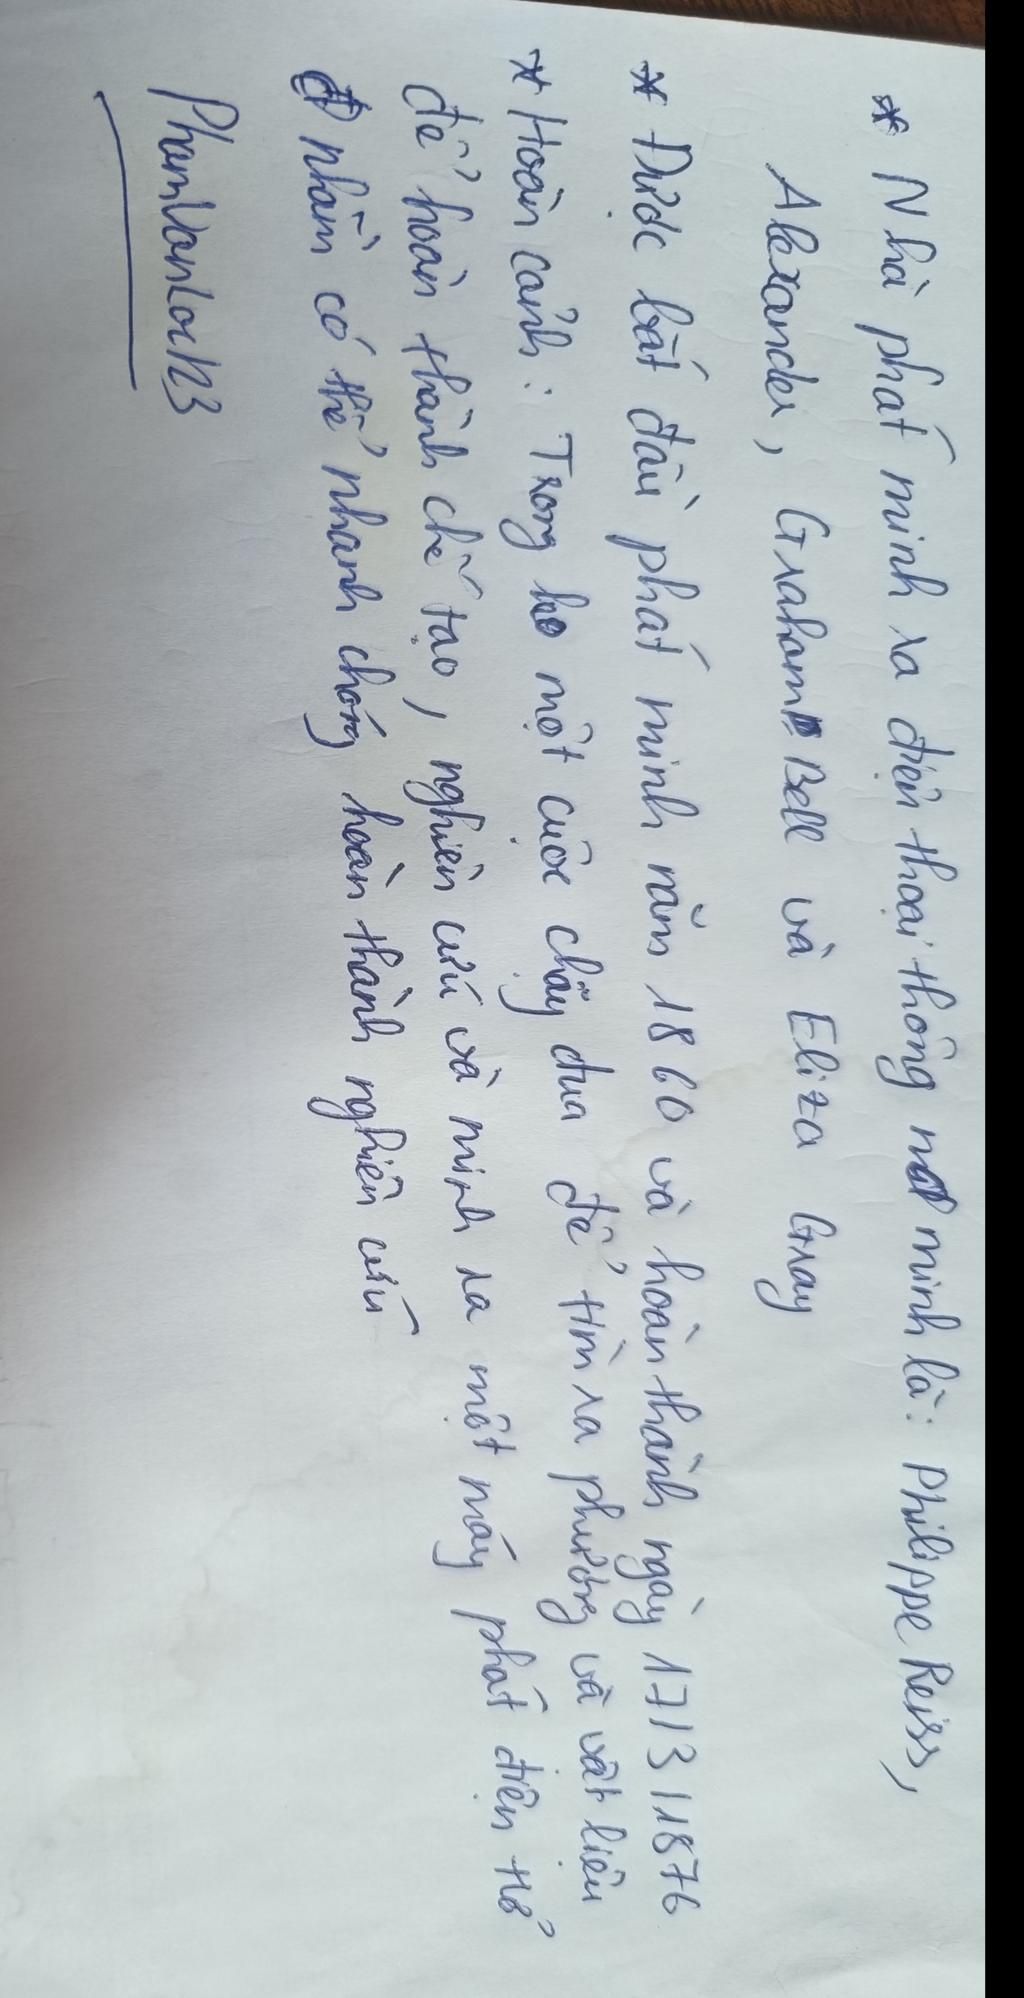 * Nhà phát minh ra điện thoại thông minh là: Philippe Reiss,
Alexander, Graham Bell và Eliza Gray
* Được bắt đầu phát minh năm 1860 và hoàn thành ngày 17/3/1876
* Hoàn cảnh: Trong một cuộc chạy đua để tìm ra phương và vật liệu
để hoàn thành chế tạo, nghiên cứu và minh ra một máy phát điện tử
nhằm có thể nhanh chóng hoàn thành nghiên cứu
PhamVanLock13